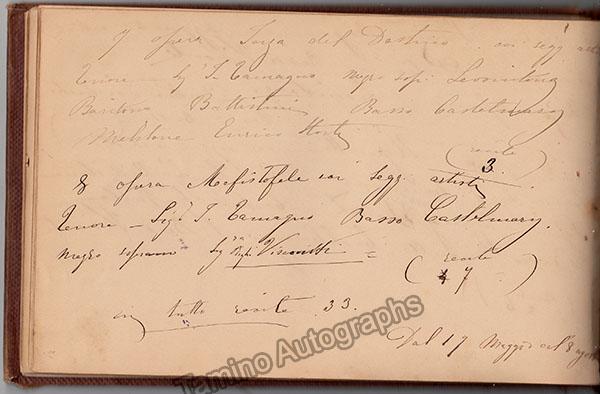 7 opera Forza del Destino coi segg. arti
Tenore Sig. F. Tamagno mezzo sop.
Baritono Battistini Basso Castelmary
Enrico
(recite
3.
8 opera Mefistofele coi segg. artisti
Tenore - Sig. F. Tamagno Basso Castelmary.
mezzo soprano Sig.ra
(recite
7)
in tutto recite 33.
Dal 17 Maggio al 8 agos
Tamino Autographs